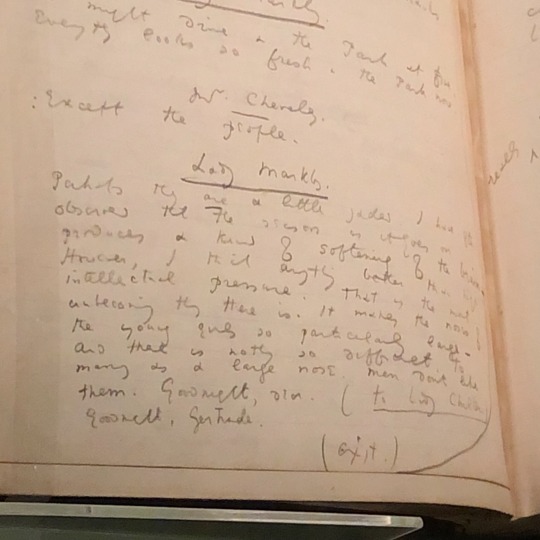 Lady Markby.
might drive in the Park at five
Everything looks so fresh in the Park now
Mrs. Cheveley.
: Except the people.
Lady Markby.
Perhaps they are a little jaded. I have
observed that the season as it goes on
produces a kind of softening of the brain.
However, I think anything better than high
intellectual pressure. That is the most
unbecoming thing there is. It makes the noses of
the young girls so particularly large.
and there is nothing so difficult to
marry as a large nose, men don't like
them. Goodnight, dear. (to Lady Chiltern)
Goodnight, Gertrude.
(exit.)